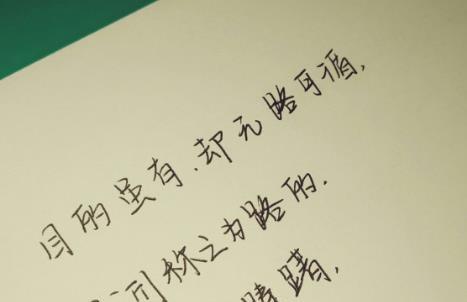 目的虽有,却无路可循,
称之为路的,
踌躇,